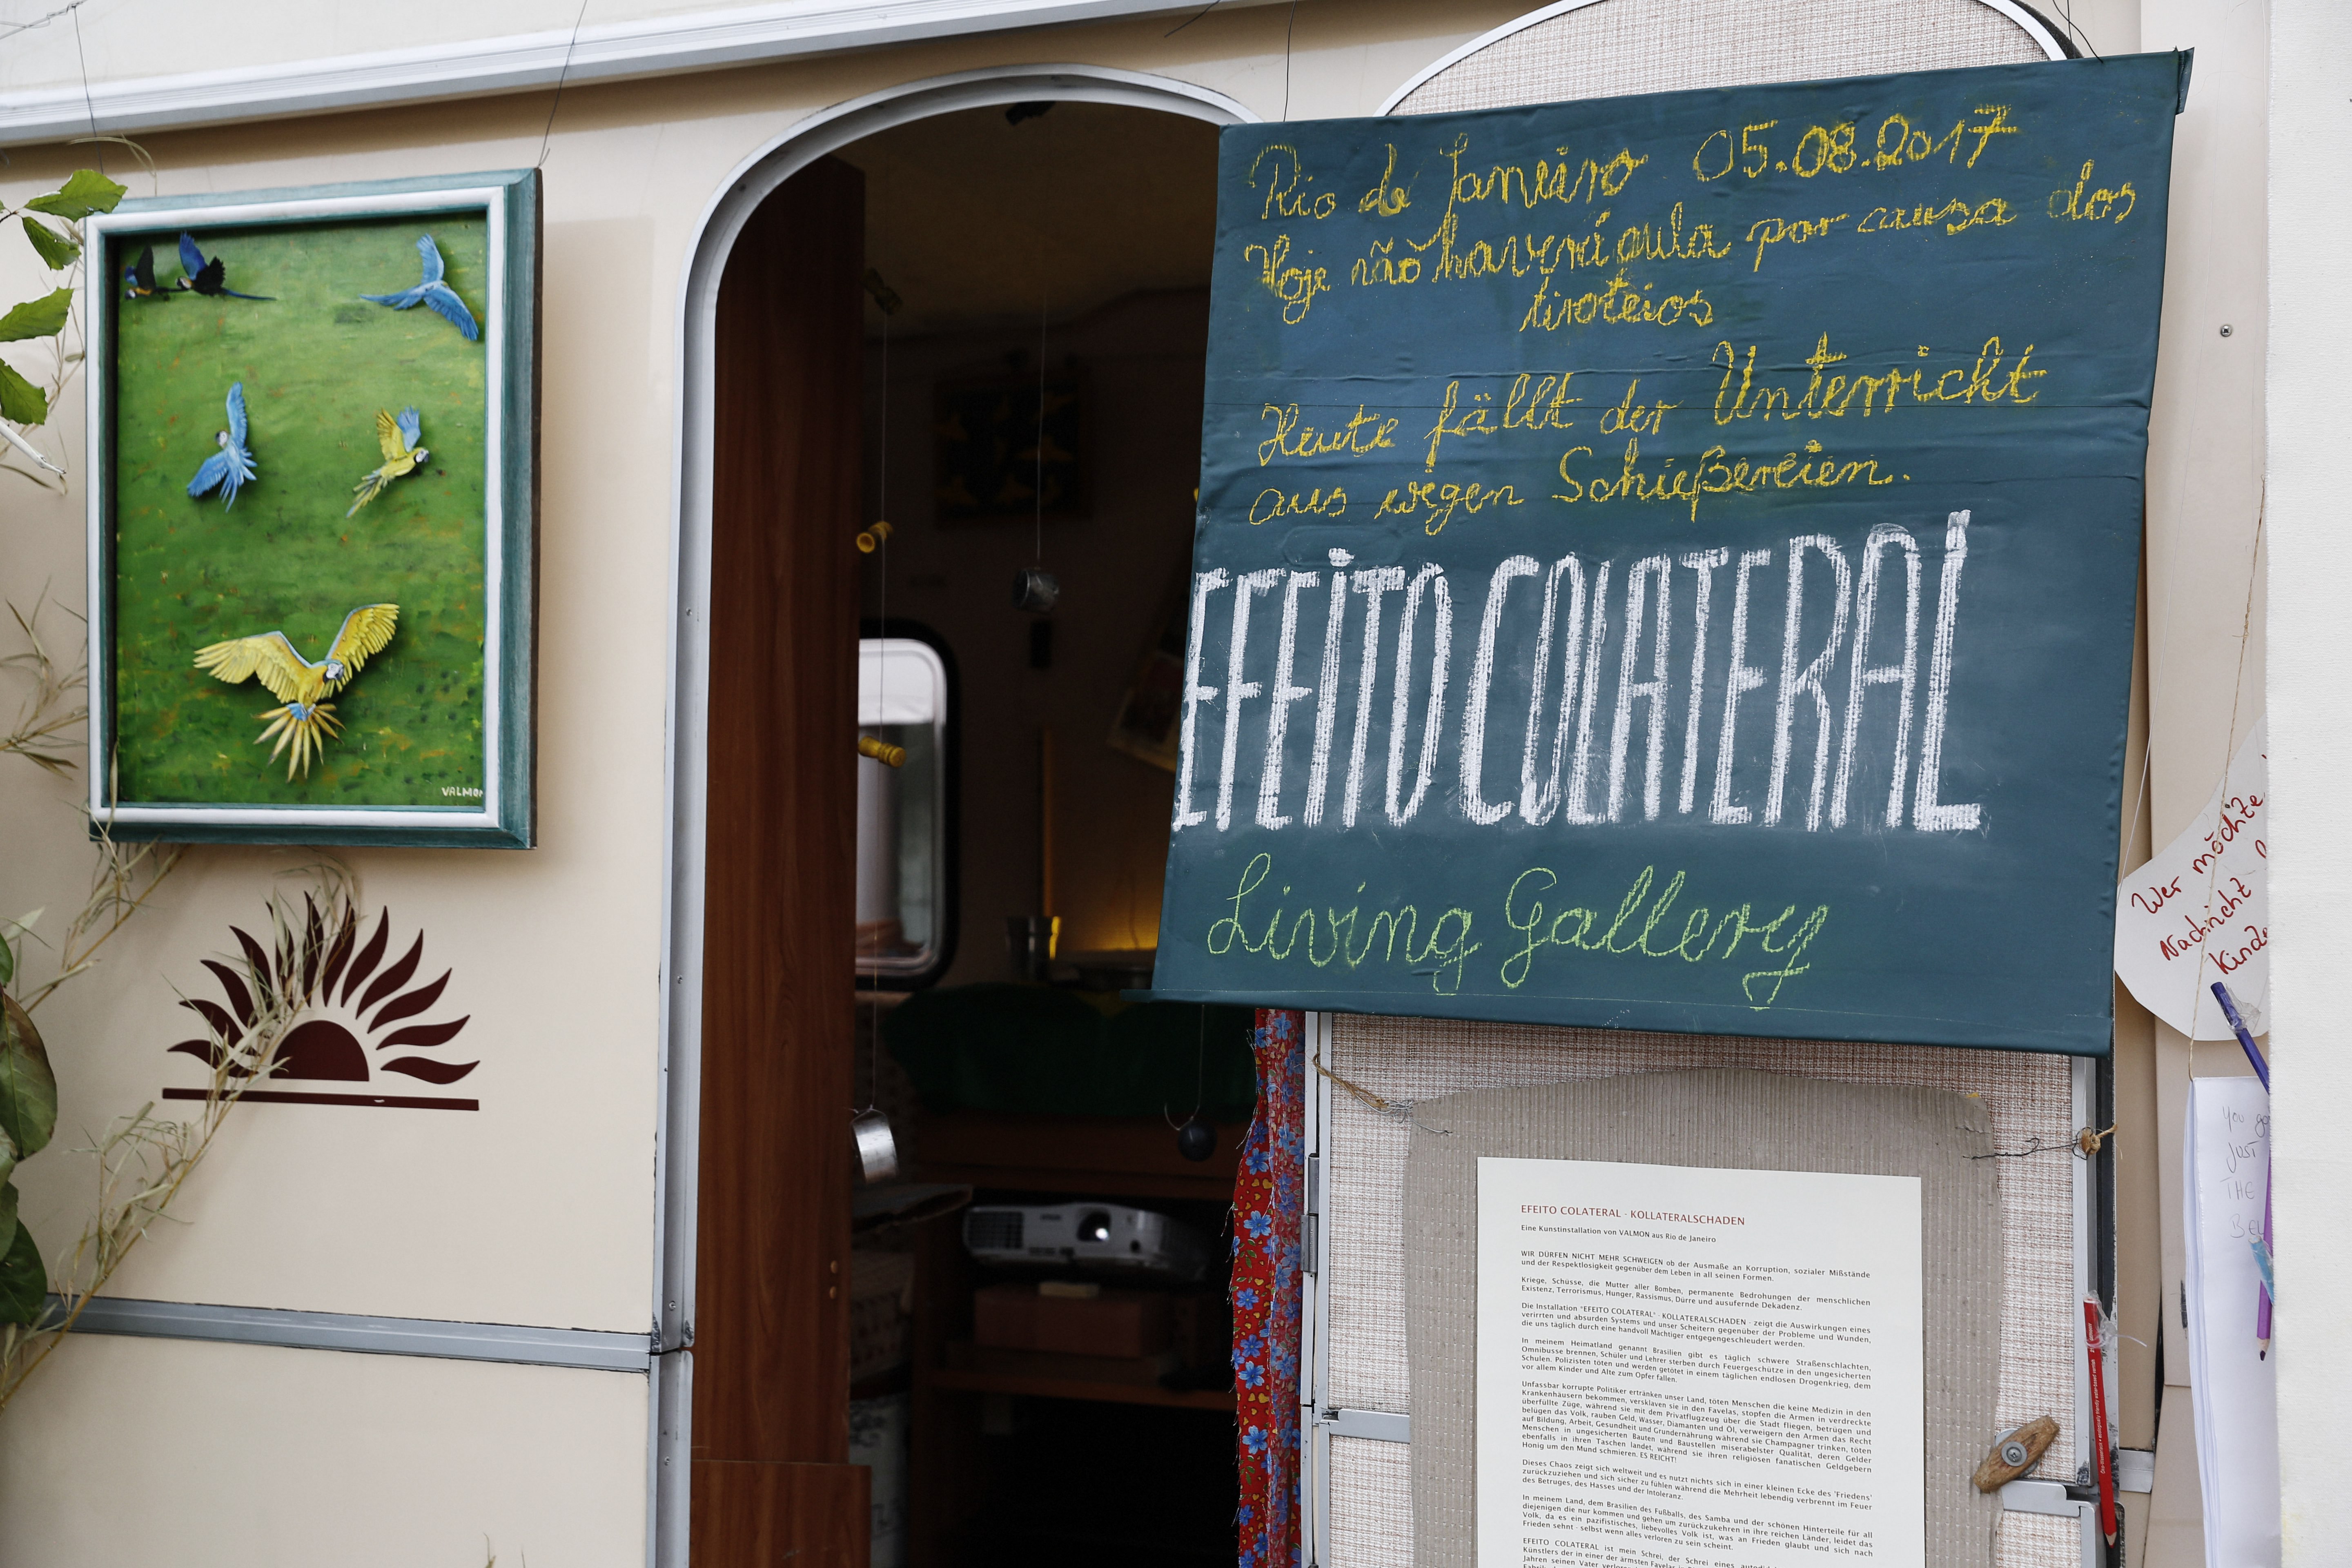 VALMON
Rio de Janeiro 05.08.2017
Hoje não haverá aula por causa dos
tiroteios
Heute fällt der Unterricht
aus wegen Schießereien.
EFEITO COLATERAL
Living Gallery
Wer möchte
Nachricht
Kinde
You go
JUST
THE
BE
EFEITO COLATERAL - KOLLATERALSCHADEN
Eine Kunstinstallation von VALMON aus Rio de Janeiro
WIR DÜRFEN NICHT MEHR SCHWEIGEN ob der Ausmaße an Korruption, sozialer Mißstände
und der Respektlosigkeit gegenüber dem Leben in all seinen Formen.
Kriege, Schüsse, die Mutter aller Bomben, permanente Bedrohungen der menschlichen
Existenz, Terrorismus, Hunger, Rassismus, Dürre und ausufernde Dekadenz.
Die Installation "EFEITO COLATERAL" - KOLLATERALSCHADEN - zeigt die Auswirkungen eines
verirrten und absurden Systems und unser Scheitern gegenüber der Probleme und Wunden,
die uns täglich durch eine handvoll Mächtiger entgegengeschleudert werden.
In meinem Heimatland genannt Brasilien gibt es täglich schwere Straßenschlachten,
Omnibusse brennen, Schüler und Lehrer sterben durch Feuergeschütze in den ungesicherten
Schulen. Polizisten töten und werden getötet in einem täglichen endlosen Drogenkrieg, dem
vor allem Kinder und Alte zum Opfer fallen.
Unfassbar korrupte Politiker ertränken unser Land, töten Menschen die keine Medizin in den
Krankenhäusern bekommen, versklaven sie in den Favelas, stopfen die Armen in verdreckte
überfüllte Züge, während sie mit dem Privatflugzeug über die Stadt fliegen, betrügen und
belügen das Volk, rauben Geld, Wasser, Diamanten und Öl, verweigern den Armen das Recht
auf Bildung, Arbeit, Gesundheit und Grundernährung während sie Champagner trinken, töten
Menschen in ungesicherten Bauten und Baustellen miserabelster Qualität, deren Gelder
ebenfalls in ihren Taschen landet, während sie ihren religiösen fanatischen Geldgebern
Honig um den Mund schmieren. ES REICHT!
Dieses Chaos zeigt sich weltweit und es nutzt nichts sich in einer kleinen Ecke des 'Friedens'
zurückzuziehen und sich sicher zu fühlen während die Mehrheit lebendig verbrennt im Feuer
des Betruges, des Hasses und der Intoleranz.
In meinem Land, dem Brasilien des Fußballs, des Samba und der schönen Hinterteile für all
diejenigen die nur kommen und gehen um zurückzukehren in ihre reichen Länder, leidet das
Volk, da es ein pazifistisches, liebevolles Volk ist, was an Frieden glaubt und sich nach
Frieden sehnt - selbst wenn alles verloren zu sein scheint.
EFEITO COLATERAL ist mein Schrei, der Schrei eines
Künstlers der in einer der ärmsten Favelas
Jahren seinen Vater